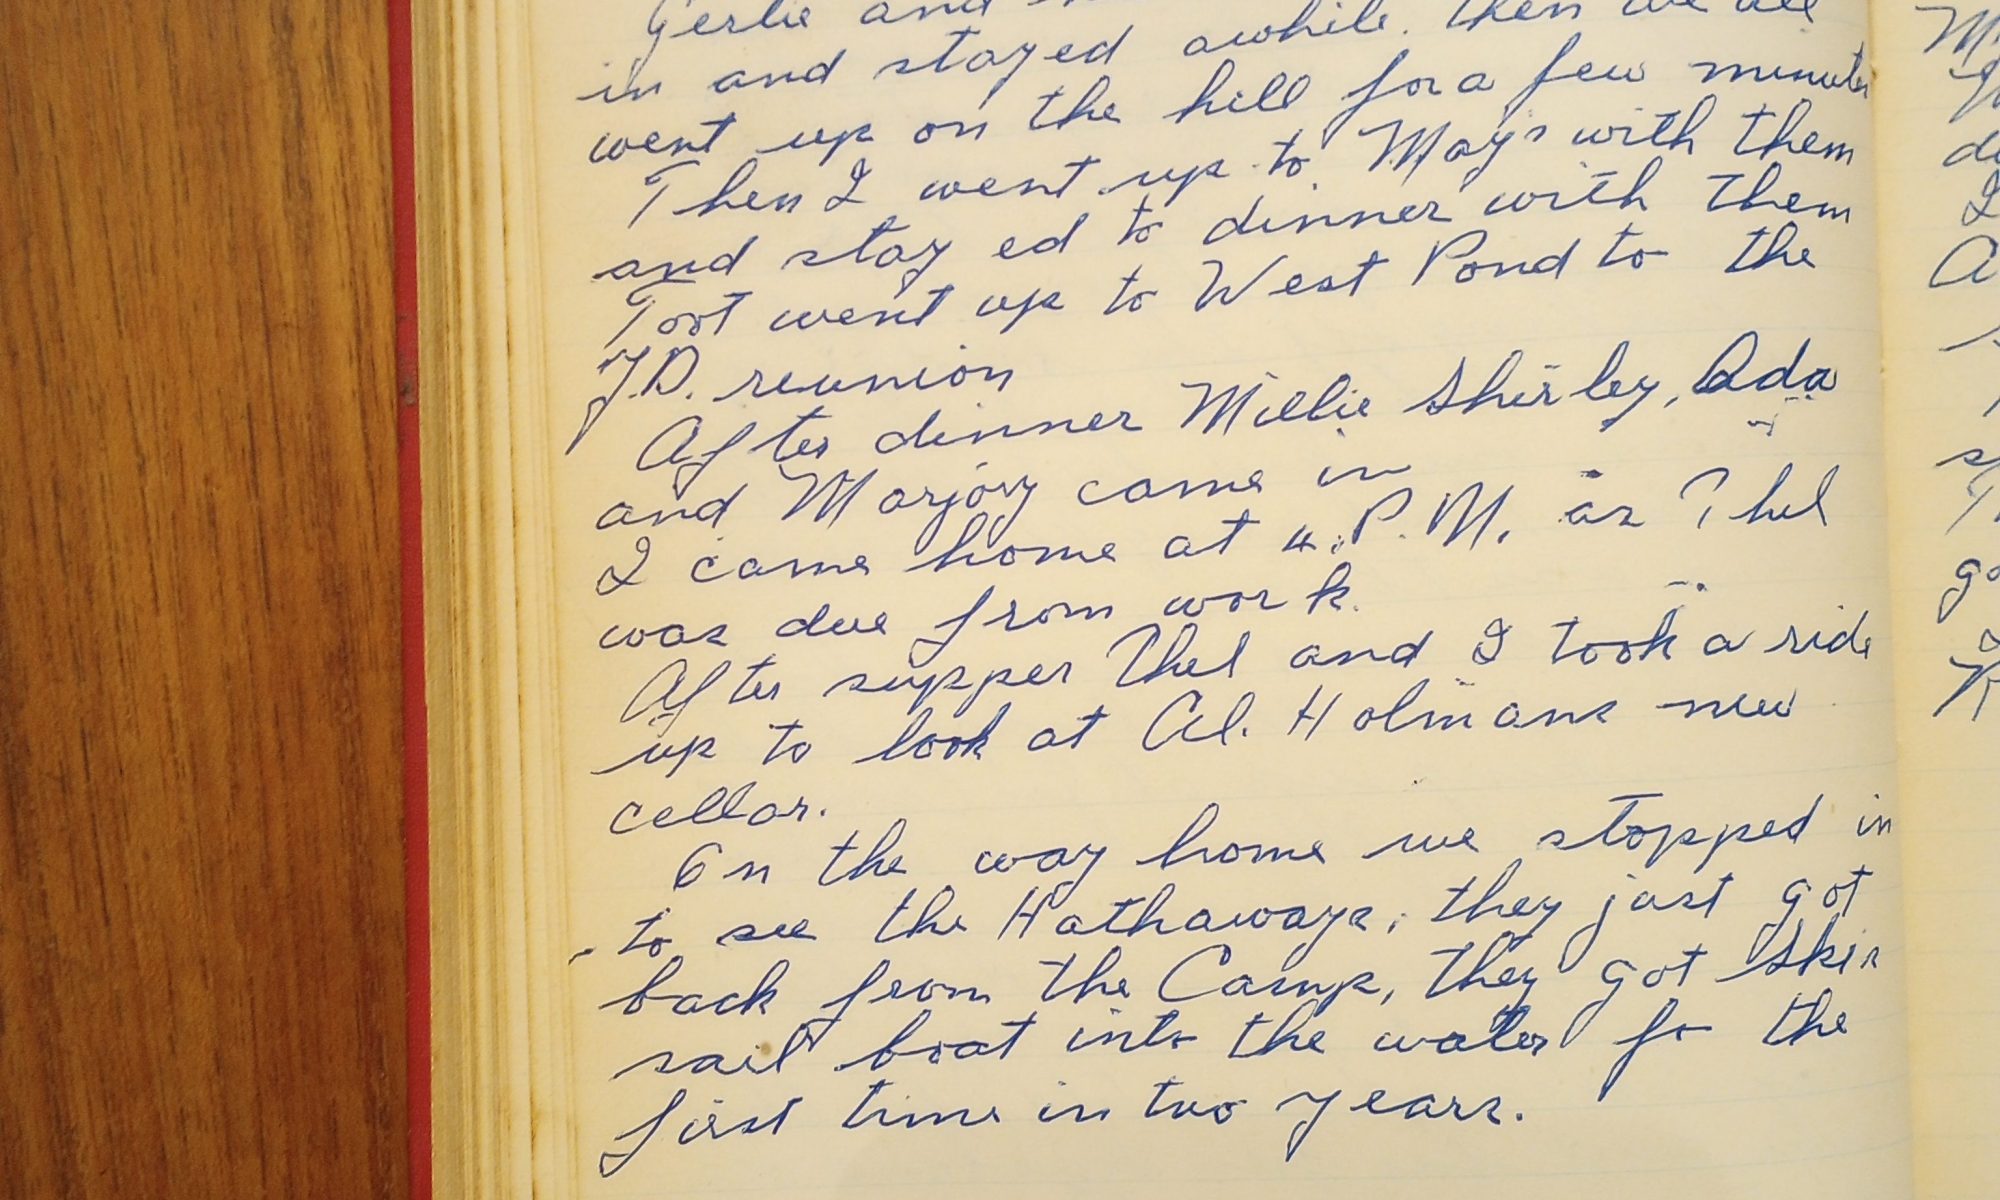 Gertie and
in and stayed awhile. Then we all
went up on the hill for a few minutes
Then I went up to Mays with them
and stay ed to dinner with them
Toot went up to West Pond to the
J.D. reunion
After dinner Millie Shirley, Ada
and Marjory came in
I came home at 4.P.M. as Thel
was due from work.
After supper Thel and I took a ride
up to look at Al. Holmans new
cellar.
On the way home we stopped in
to see the Hathaways, they just got
back from the Camp, they got Skis
sail boat into the water fo the
first time in two years.